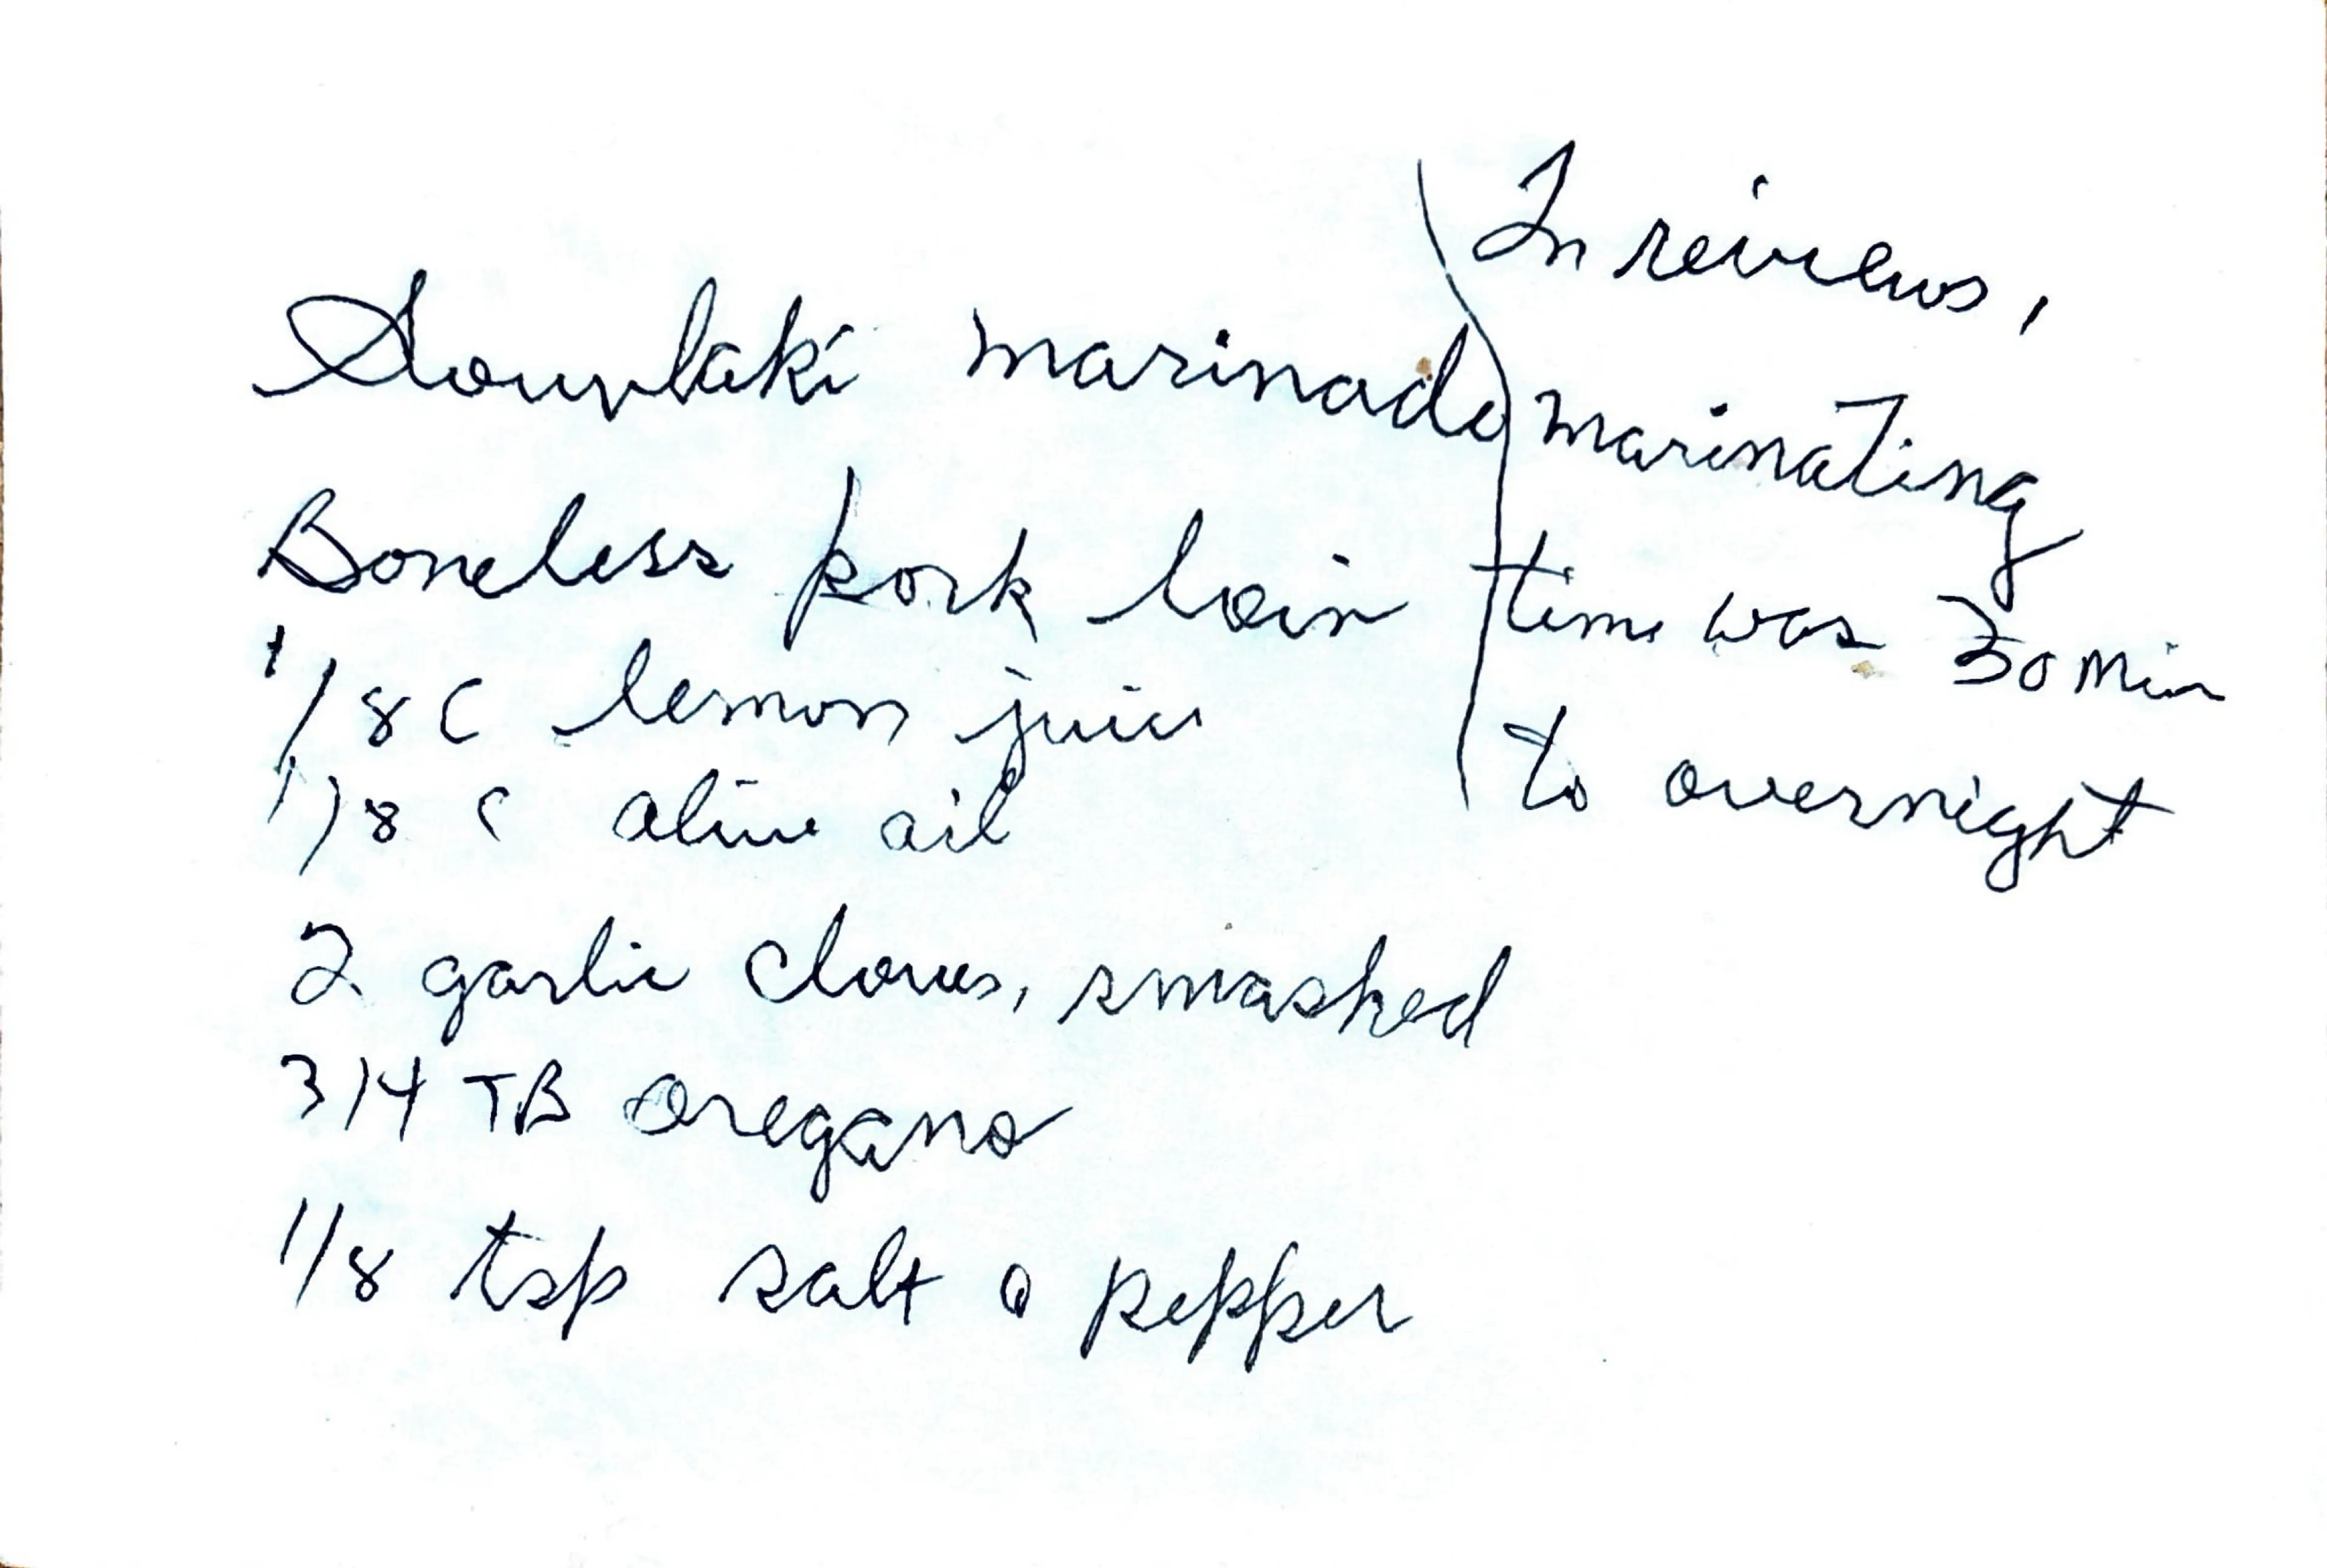 Souvlaki marinade
Boneless pork loin
1/8 C lemon juice
1/8 C olive oil
2 garlic cloves, smashed
3/4 TB oregano
1/8 tsp salt & pepper
In reviews,
marinating
time was 30 min
to overnight